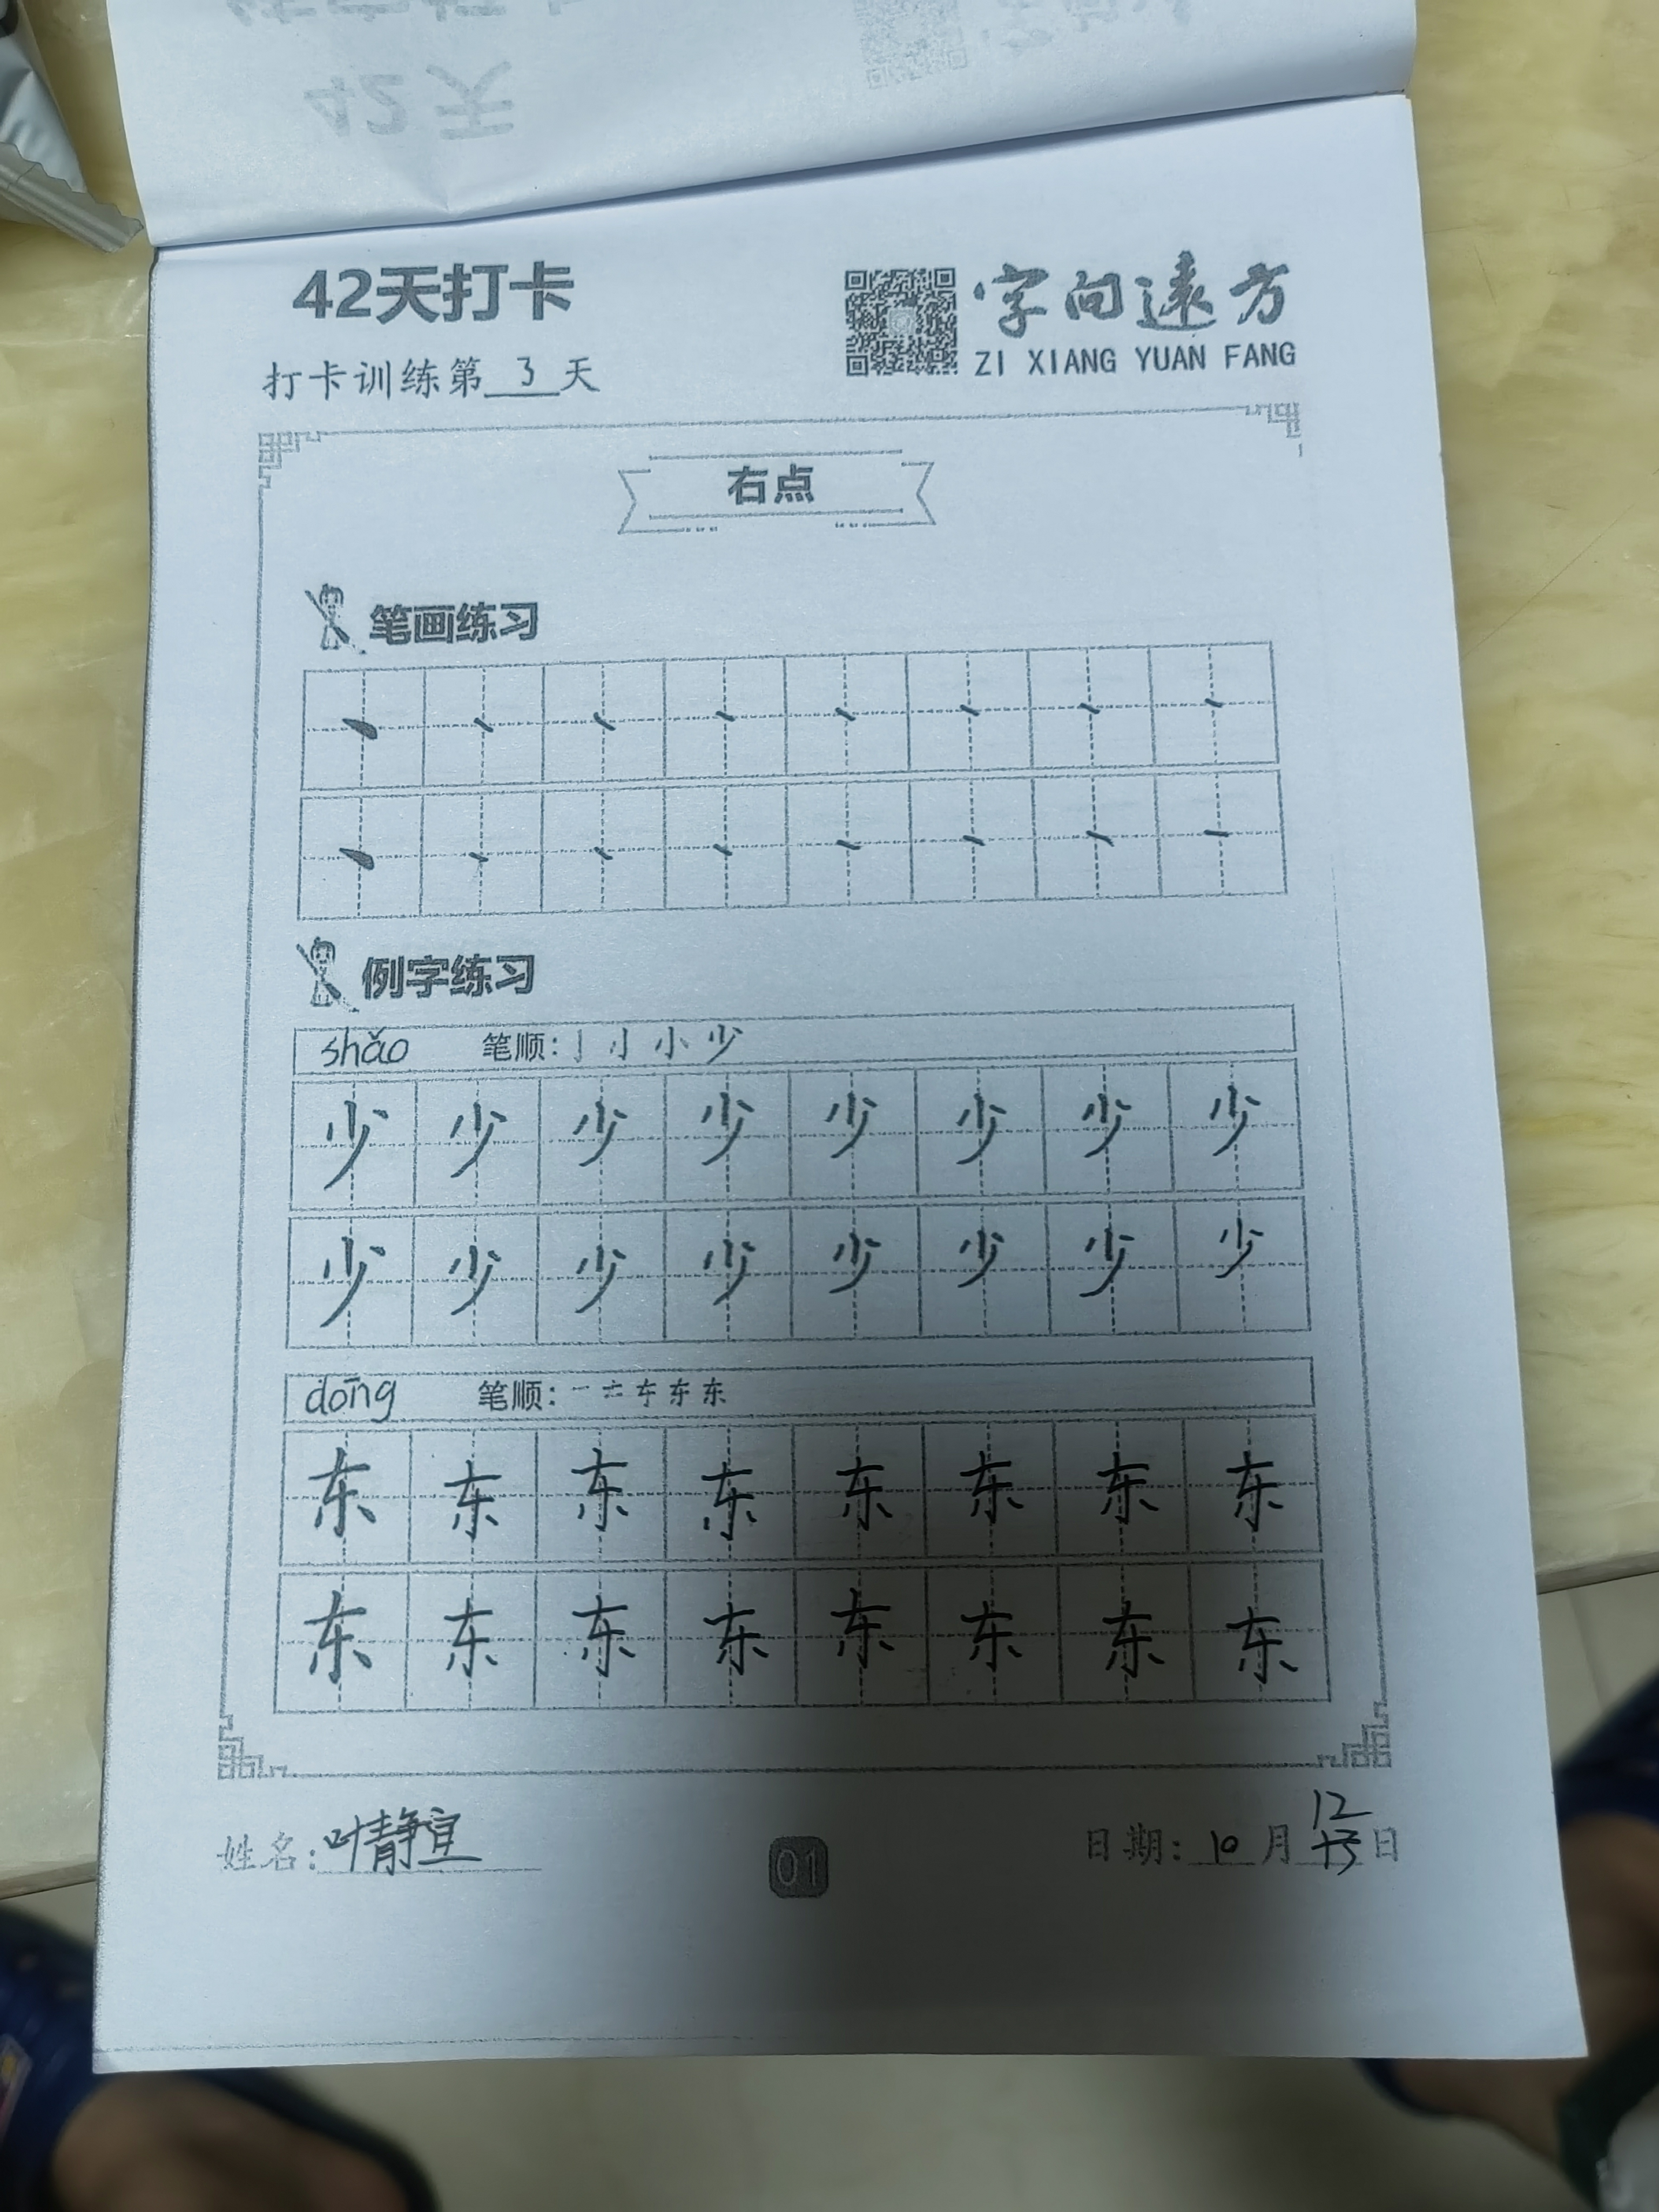 42天
42天打卡
字向遠方
ZI XIANG YUAN FANG
打卡训练第3天
右点
笔画练习
丶 丶 丶 丶 丶 丶 丶 丶
丶 丶 丶 丶 丶 丶 丶 丶
例字练习
shǎo 笔顺: 亅 小 少
少 少 少 少 少 少 少 少
少 少 少 少 少 少 少 少
dōng 笔顺: 一 东
东 东 东 东 东 东 东 东
东 东 东 东 东 东 东 东
姓名: 叶静宜
01
日期: 10月12日